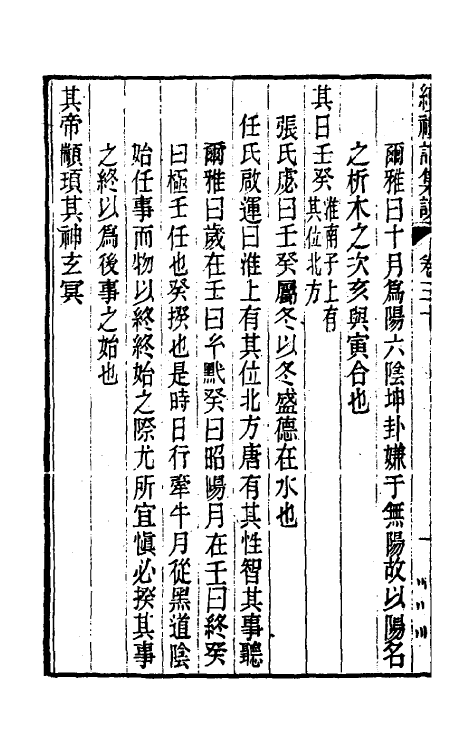 續禮記集說 卷三十
爾雅曰十月爲陽六陰坤卦嫌于無陽故以陽名
之析木之次亥與寅合也
其日壬癸淮南子上有其位北方
張氏虙曰壬癸屬冬以冬盛德在水也
任氏啟運曰淮上有其位北方唐有其性智其事聽
爾雅曰歲在壬曰玄黓癸曰昭陽月在壬曰終癸
曰極壬任也癸揆也是時日行牽牛月從黑道陰
始任事而物以終終始之際尤所宜愼必揆其事
之終以爲後事之始也
其帝顓頊其神玄冥